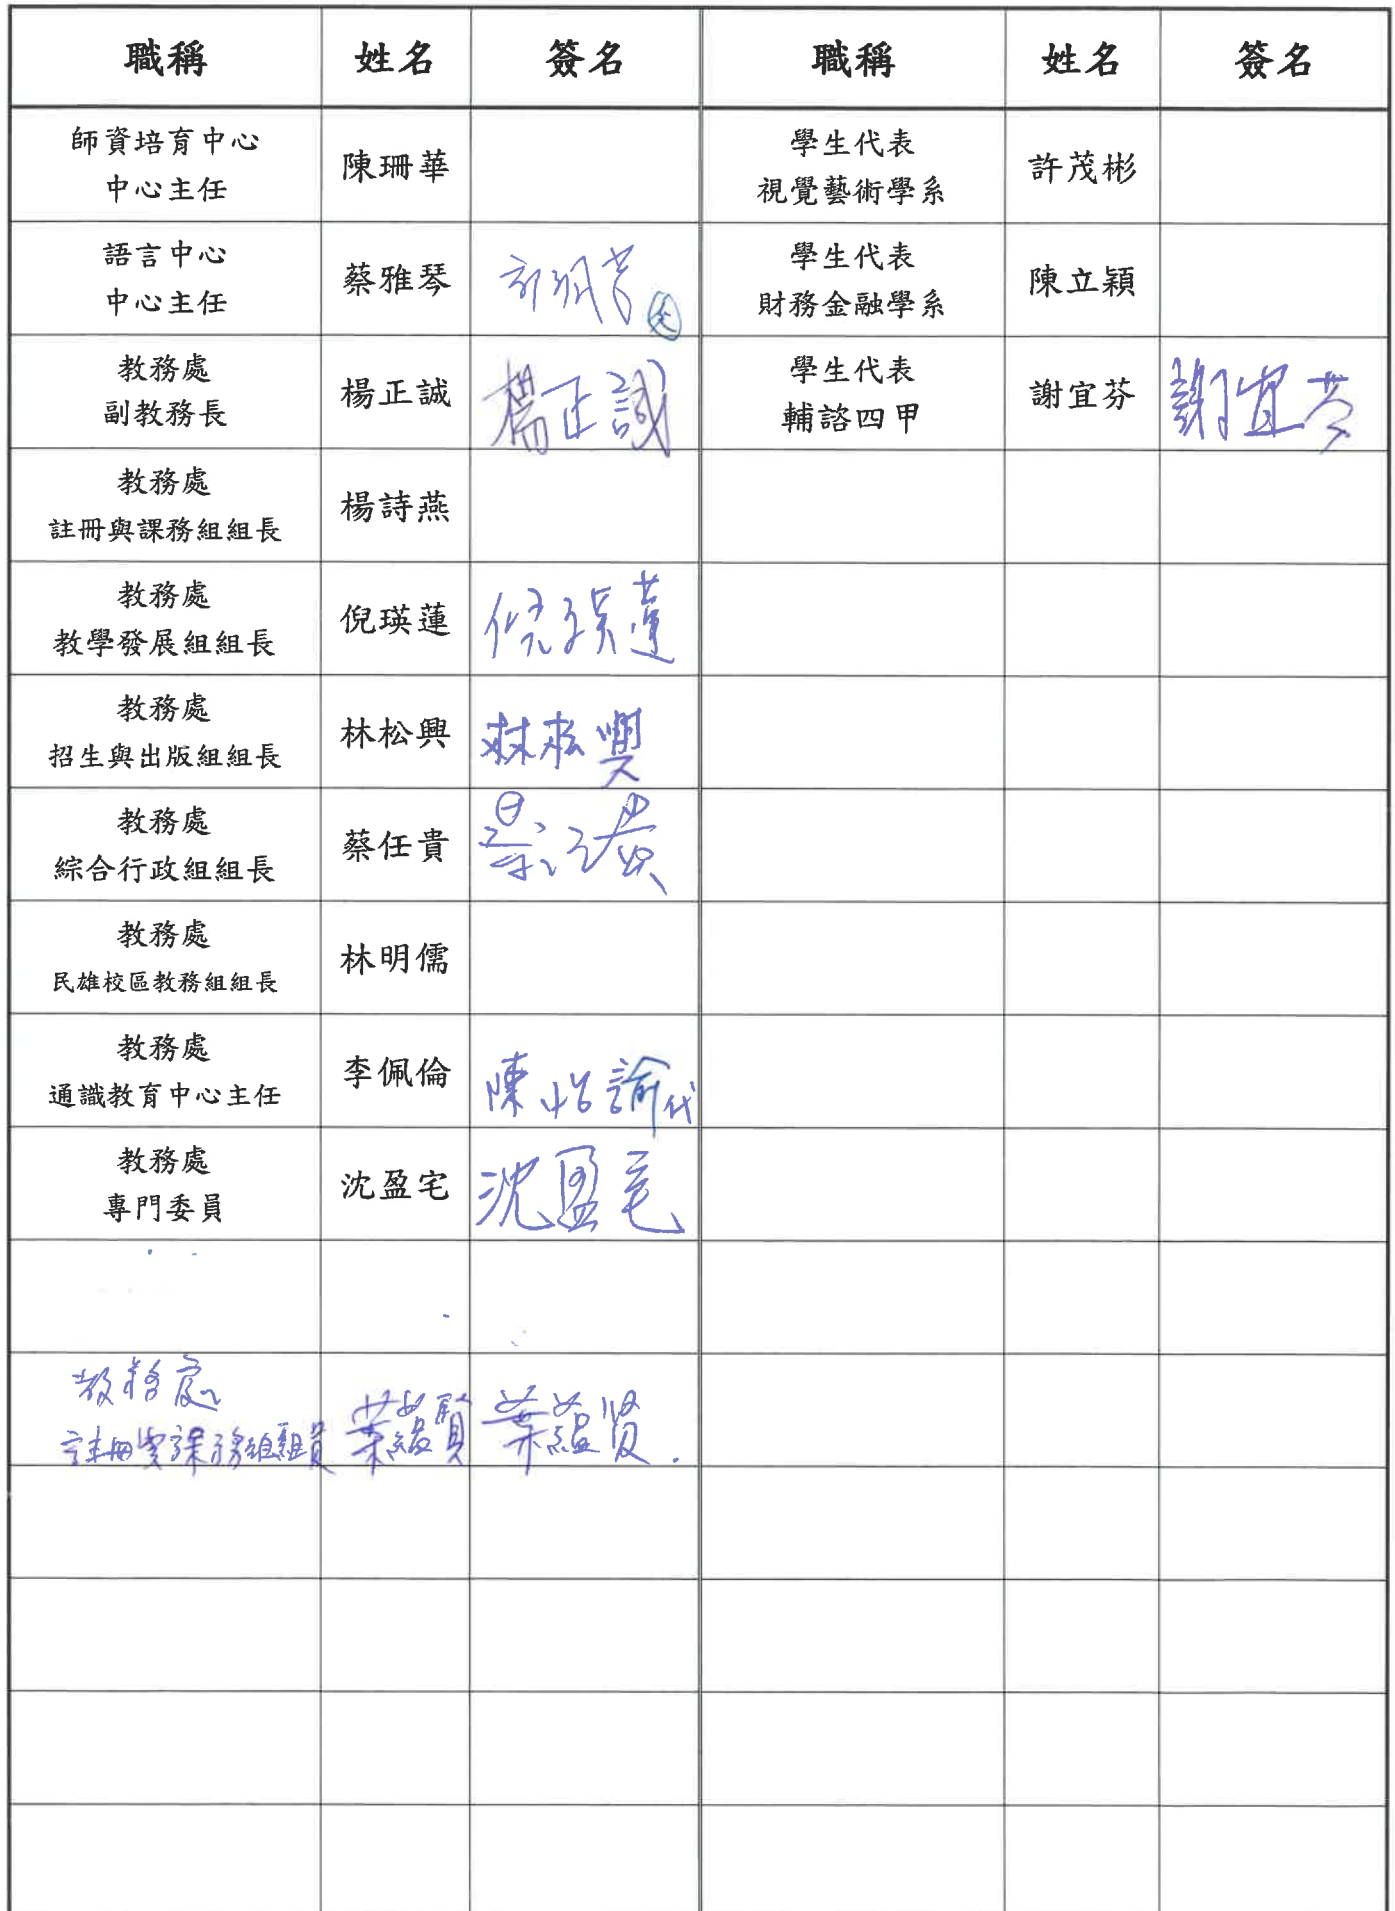 職稱 姓名 簽名 職稱 姓名 簽名
師資培育中心
中心主任
陳珊華
學生代表
視覺藝術學系
許茂彬
語言中心
中心主任
蔡雅琴
學生代表
財務金融學系
陳立穎
教務處
副教務長
楊正誠
楊正誠
學生代表
輔諮四甲
謝宜芬
謝宜芬
教務處
註冊與課務組組長
楊詩燕
教務處
教學發展組組長
倪瑛蓮
倪瑛蓮
教務處
招生與出版組組長
林松興
林松興
教務處
綜合行政組組長
蔡任貴
蔡任貴
教務處
民雄校區教務組組長
林明儒
教務處
通識教育中心主任
李佩倫
陳怡諭代
教務處
專門委員
沈盈宅
沈盈宅
教務處
註冊與課務組組員
葉蘊賢
葉蘊賢.